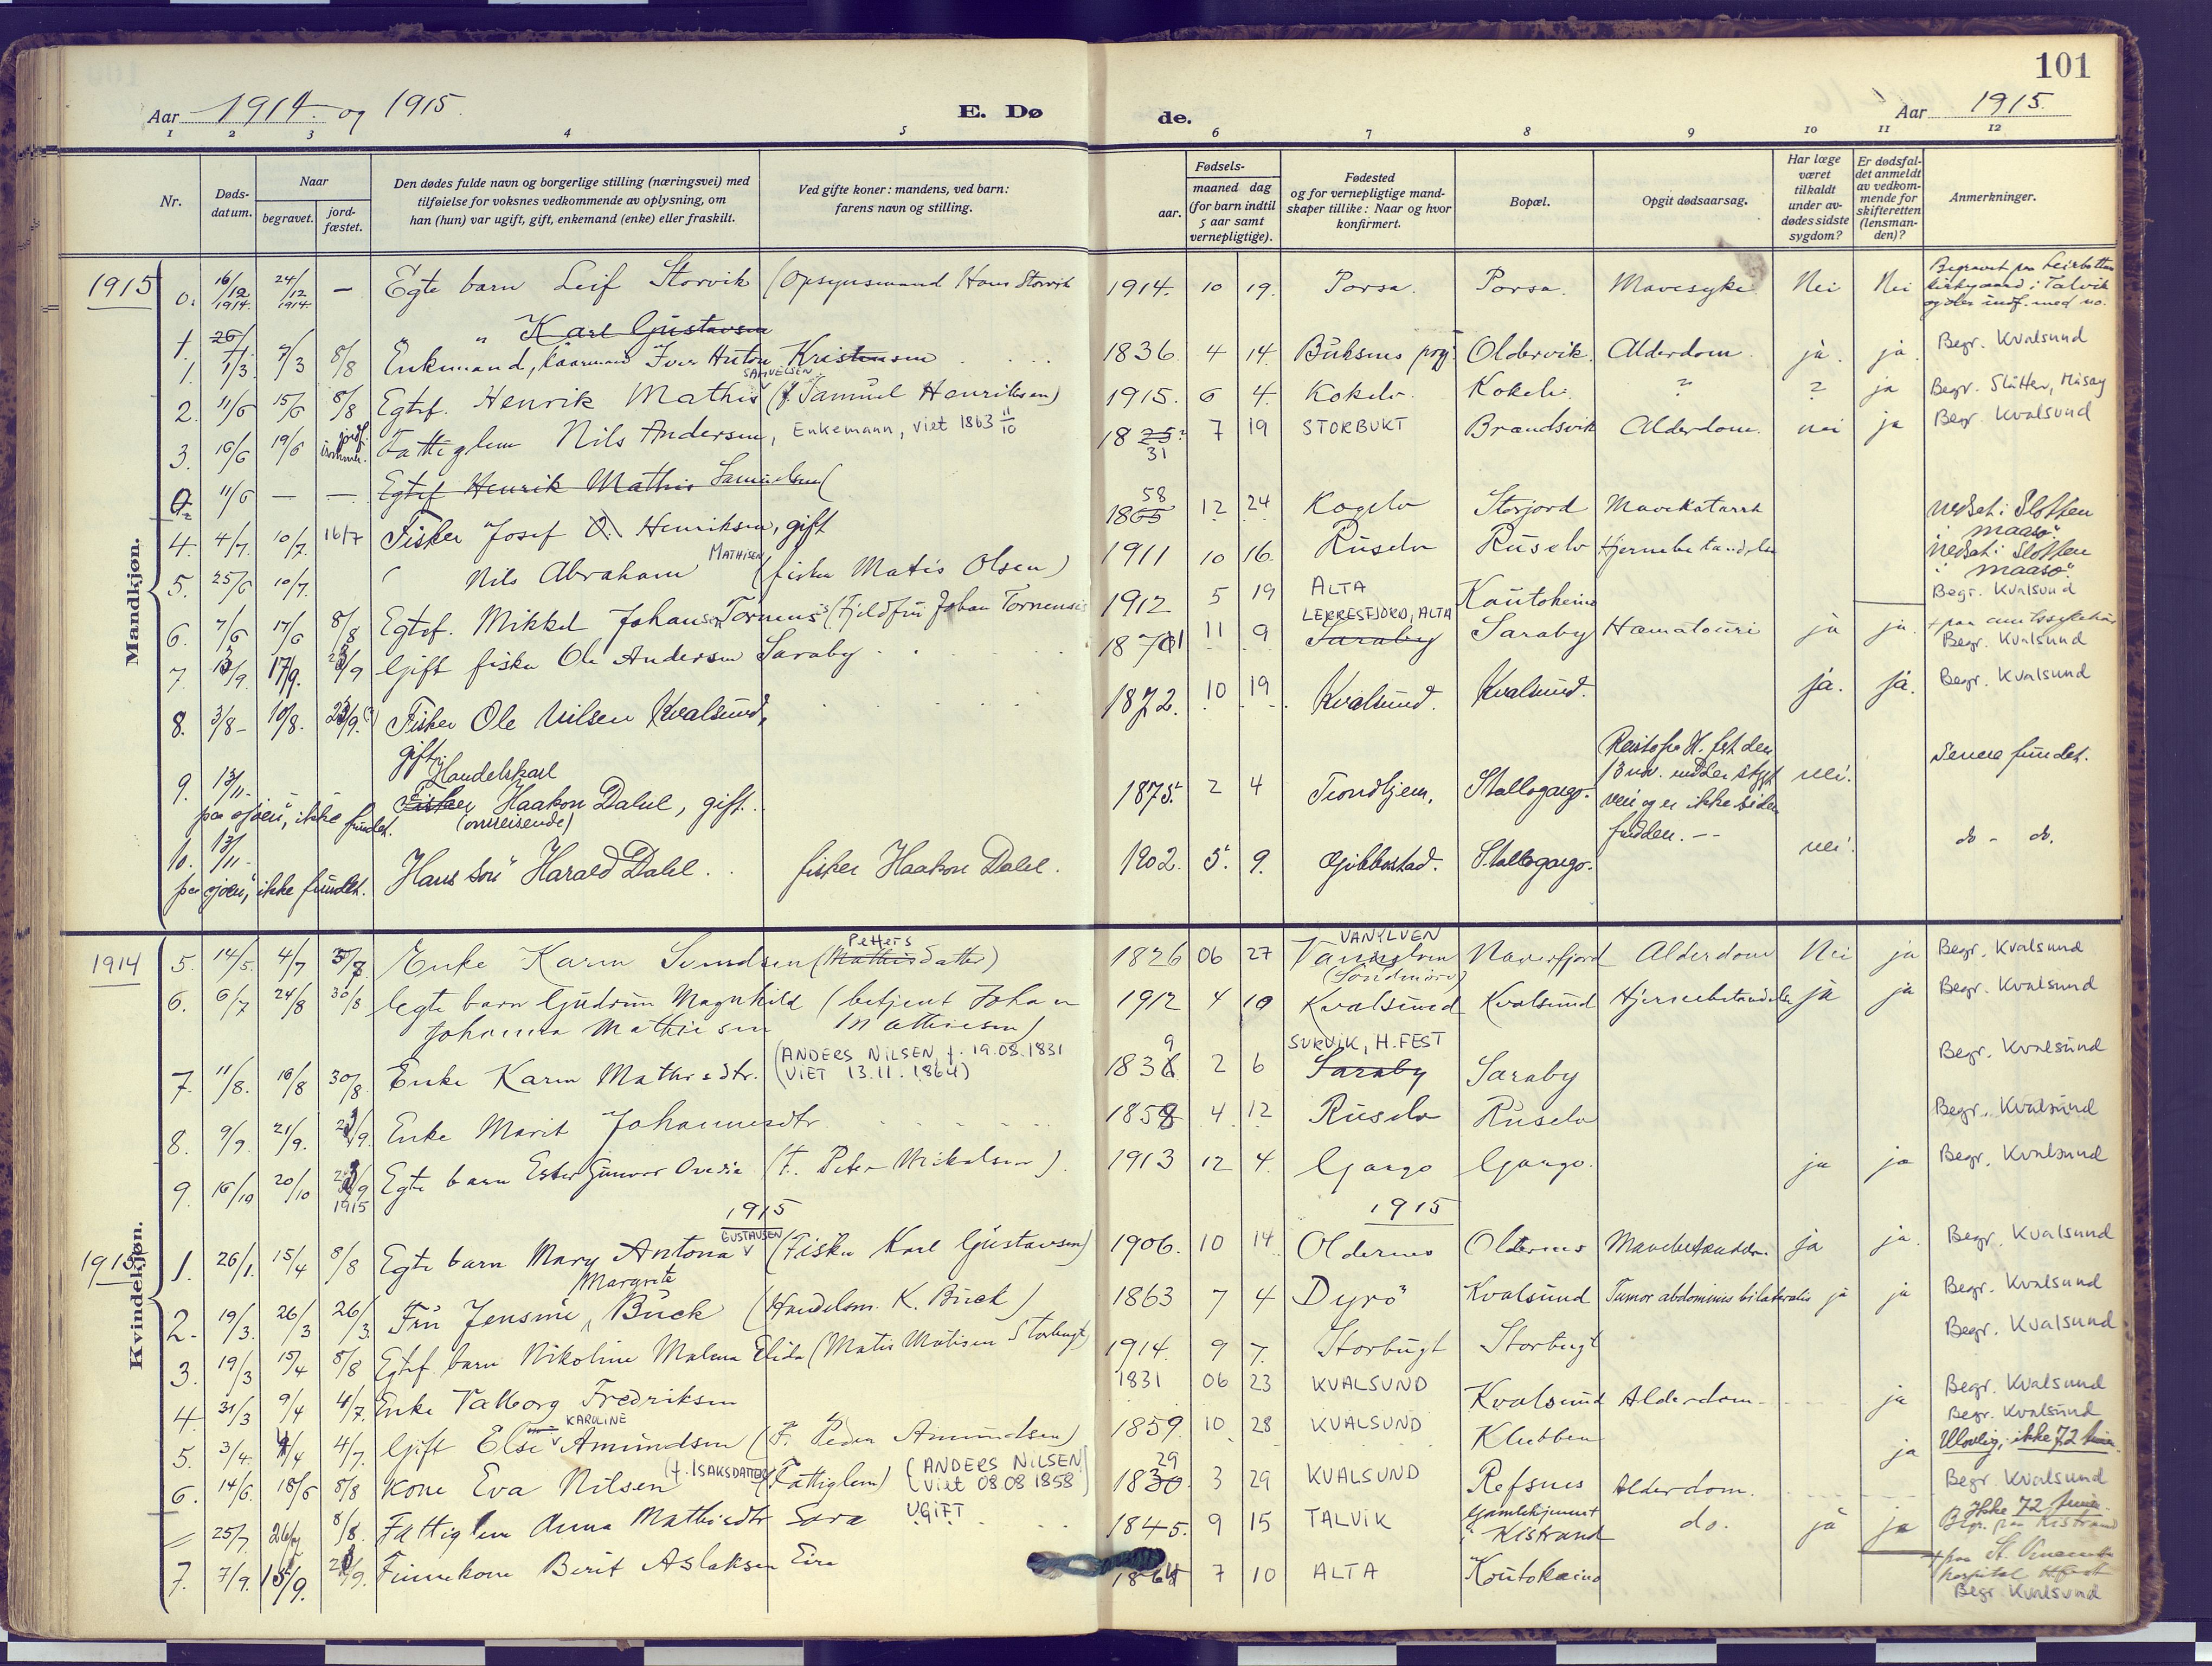 101
Aar 1914. og 1915.
E. Dø
de.
Aar 1915.
1 2 3 4 5 6 7 8 9 10 11 12
Nr.
Døds-
datum.
Naar
begravet.
jord-
fæstet.
Den dødes fulde navn og borgerlige stilling (næringsvei) med
tilføielse for voksnes vedkommende av oplysning, om
han (hun) var ugift, gift, enkemand (enke) eller fraskilt.
Ved gifte koner: mandens, ved barn:
farens navn og stilling.
Fødsels-
aar.
maaned dag
(for barn indtil
5 aar samt
vernepligtige).
Fødested
og for vernepligtige mand-
skaper tillike: Naar og hvor
konfirmert.
Bopæl.
Opgit dødsaarsag.
Har læge
været
tilkaldt
under av-
dødes sidste
sygdom?
Er dødsfal-
det anmeldt
av vedkom-
mende for
skifteretten
(lensman-
den)?
Anmerkninger.
Mandkjøn.
1915 0. 16/12 1914. 24/12 1914. — Egte barn Leif Storvik (Opsynsmand Hans Storvik 1914. 10 19. Porsa. Porsa. Mavesyke Nei Nei Begravet paa Leirbotten
kirkegaard i Talvik
1. 26/ " Karl Gustavsen
1. 1/3. 7/3 8/8 Enkemand, Iver Kristensen 1836. 4 14. Buksnes prgj. Oldervik. Alderdom. ja. ja. Begr. Kvalsund
2. 11/6 15/6 8/8 Egtef. Henrik Mathis SAMUELSEN (f. Samuel Henriksen) 1915. 6 4. Kokelv. Kokelv. " ? ja Begr. Slåtten, Måsøy
3. 16/6 19/6 Fattiglem Nils Andersen, Enkemann, viet 1863 11/10 1825. 31 7 19 STORBUKT Brandsvik Alderdom. nei ja Begr. Kvalsund
11/6 — — Egtef Henrik Mathis Samuelsen (
4. 4/7. 10/7. 16/7 Fisker Josef O. Henriksen, gift 1865 58 12 24 Kogelv Storjord Mavekatarrh nedsat i Slotten
i "maasø".
5. 25/6 10/7. " Nils Abraham MATHISEN (fisker Matis Olsen) 1911 10 16. Ruselv Ruselv Hjernebetændelse nedsat i Slotten
i "maasø".
6. 7/6 17/6 8/8 Egtef. Mikkel Johansen Tornensis (Fjeldfin Johan Tornensis 1912 5 19 ALTA Kautokeino Begr. Kvalsund
7. 13/9. 17/9. 23/9 Gift fisker Ole Andersen Saraby 1871 11 9 LERRESFJORD, ALTA Saraby Saraby Hæmatouri ja ja. Begr. Kvalsund
8. 3/8- 10/8. 23/9. Fisker Ole Nilsen Kvalsund, 1872. 10 19 Kvalsund. Kvalsund. ja. ja. Begr. Kvalsund
gift.
9. 13/11- Handelskarl
Fisker Haakon Dahl, gift. 1875. 2 4 Trondhjem. Stallogargo. H.fest den
13 nov. under stygt
vei og er ikke siden
funden. -- nei. Senere fundet.
paa sjøen, ikke fundet. (omreisende)
10. 13/11- Hans søn Harald Dahl. fisker Haakon Dahl. 1902. 5. 9. Gibbostad. Stallogargo. nei. do - do.
paa sjøen, ikke fundet.
Kvindekjøn.
1914 5. 14/5. 4/7 5/7 Enke Karen Svendsen (Mathisdatter) Petters 1826 06 27 VANYLVEN Vannelven (Søndmøre) Naverfjord Alderdom Nei ja Begr. Kvalsund
6. 6/7 24/8 30/8 Egte barn Gudrun Magnhild (betjent Johan 1912 4 10 Kvalsund Kvalsund Hjernebetændelse ja ja Begr. Kvalsund
Johanna Mathiesen Mathiesen)
7. 11/8. 16/8 30/8. Enke Karen Mathisdtr. (ANDERS NILSEN, f. 19.08.1831
(VIET 13.11.1864) 1836 9 2 6 SURVIK, H.FEST Saraby Saraby Begr. Kvalsund
8. 9/9. 21/9. 23/9. Enke Marit Johannesdtr. 1858 4. 12 Ruselv Ruselv Begr. Kvalsund
9. 16/10 20/10 23/9 1915 Egte barn Ester Gunvor Ovedia (f. Peter Mikalsen). 1913 12 4. Gargo Gargo. ja ja Begr. Kvalsund
1915
1915
1915 1. 26/1. 15/4 8/8 Egte barn Mary Antona GUSTAVSEN (Fisker Karl Gustavsen) 1906. 10 14 Oldernes Oldernes Mavebetændelse. ja ja. Begr. Kvalsund
2. 19/3. 26/3 26/3. Fru Jensine Margrete Buck (Handelsm. K. Buck) 1863 7 4 Dyrø Kvalsund Tumor abdominis bilateralis ja ja Begr. Kvalsund
3. 19/3 15/4 8/8 Egtef. barn Nikoline Malena Elida (Matis Matisen Storbugt) 1914. 9 7. Storbugt Storbugt Begr. Kvalsund
4. 31/3 9/4 4/7. Enke Valborg Fredriksen 1831 06 23 KVALSUND Kvalsund Alderdom. ja Begr. Kvalsund
5. 3/4. 9/4 4/7. Gift Else KAROLINE Amundsen (F. Peder Amundsen) 1859. 10 28 KVALSUND Klubben ja Begr. Kvalsund
Ulovlig, ikke 72
6. 14/6. 18/6 8/8 Kone Eva Nilsen (f. ISAKSDATTER) (Fattiglem) (ANDERS NILSEN
(viet 08 08 1858) 1830. 29 3 29 KVALSUND Refsnes Alderdom. Begr. Kvalsund
= 25/7 26/7 8/8. Fattiglem Anna Mathisdtr Sara UGIFT 1845. 9 15 TALVIK Gamlehjemmet
i Kistrand do. ja ja Ikke 72
Begr. paa Kistrand
7. 7/9. 15/9. Finnekone Berit Aslaksen Eira 7 10 ALTA Koutokeino hospital
Begr. Kvalsund